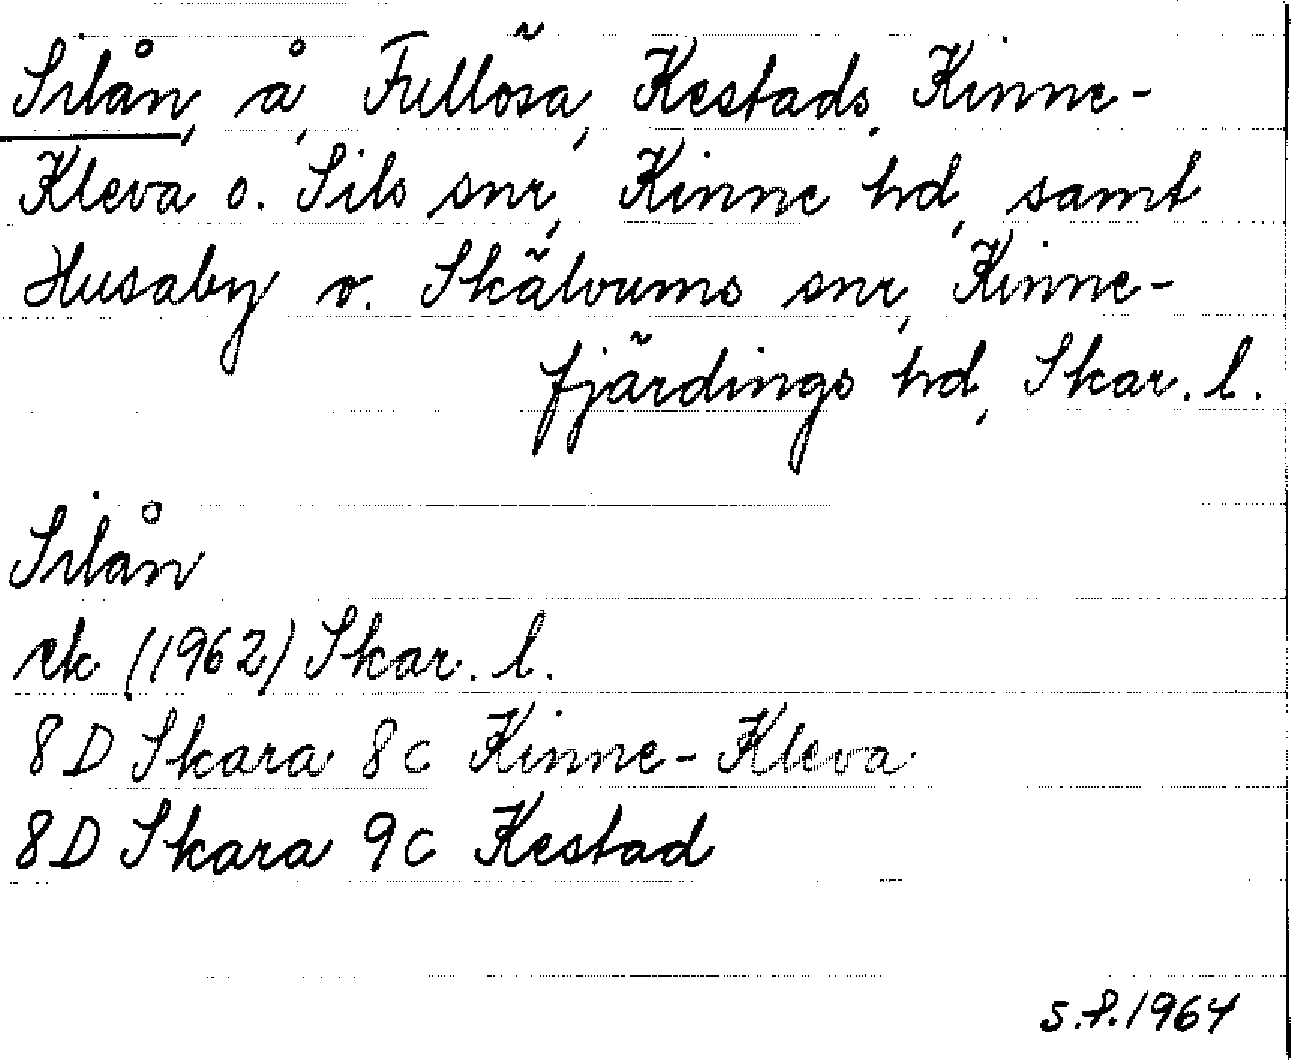 Silån, å, Fullösa, Kestads, Kinne-
Kleva o. Sils snr, Kinne hd, samt
Husaby o. Skälvums snr, Kinne-
fjärdings hd, Skar. l.
Silån
ek (1962) Skar. l.
8D Skara 8c Kinne-Kleva
8D Skara 9c Kestad
S.P. 1964